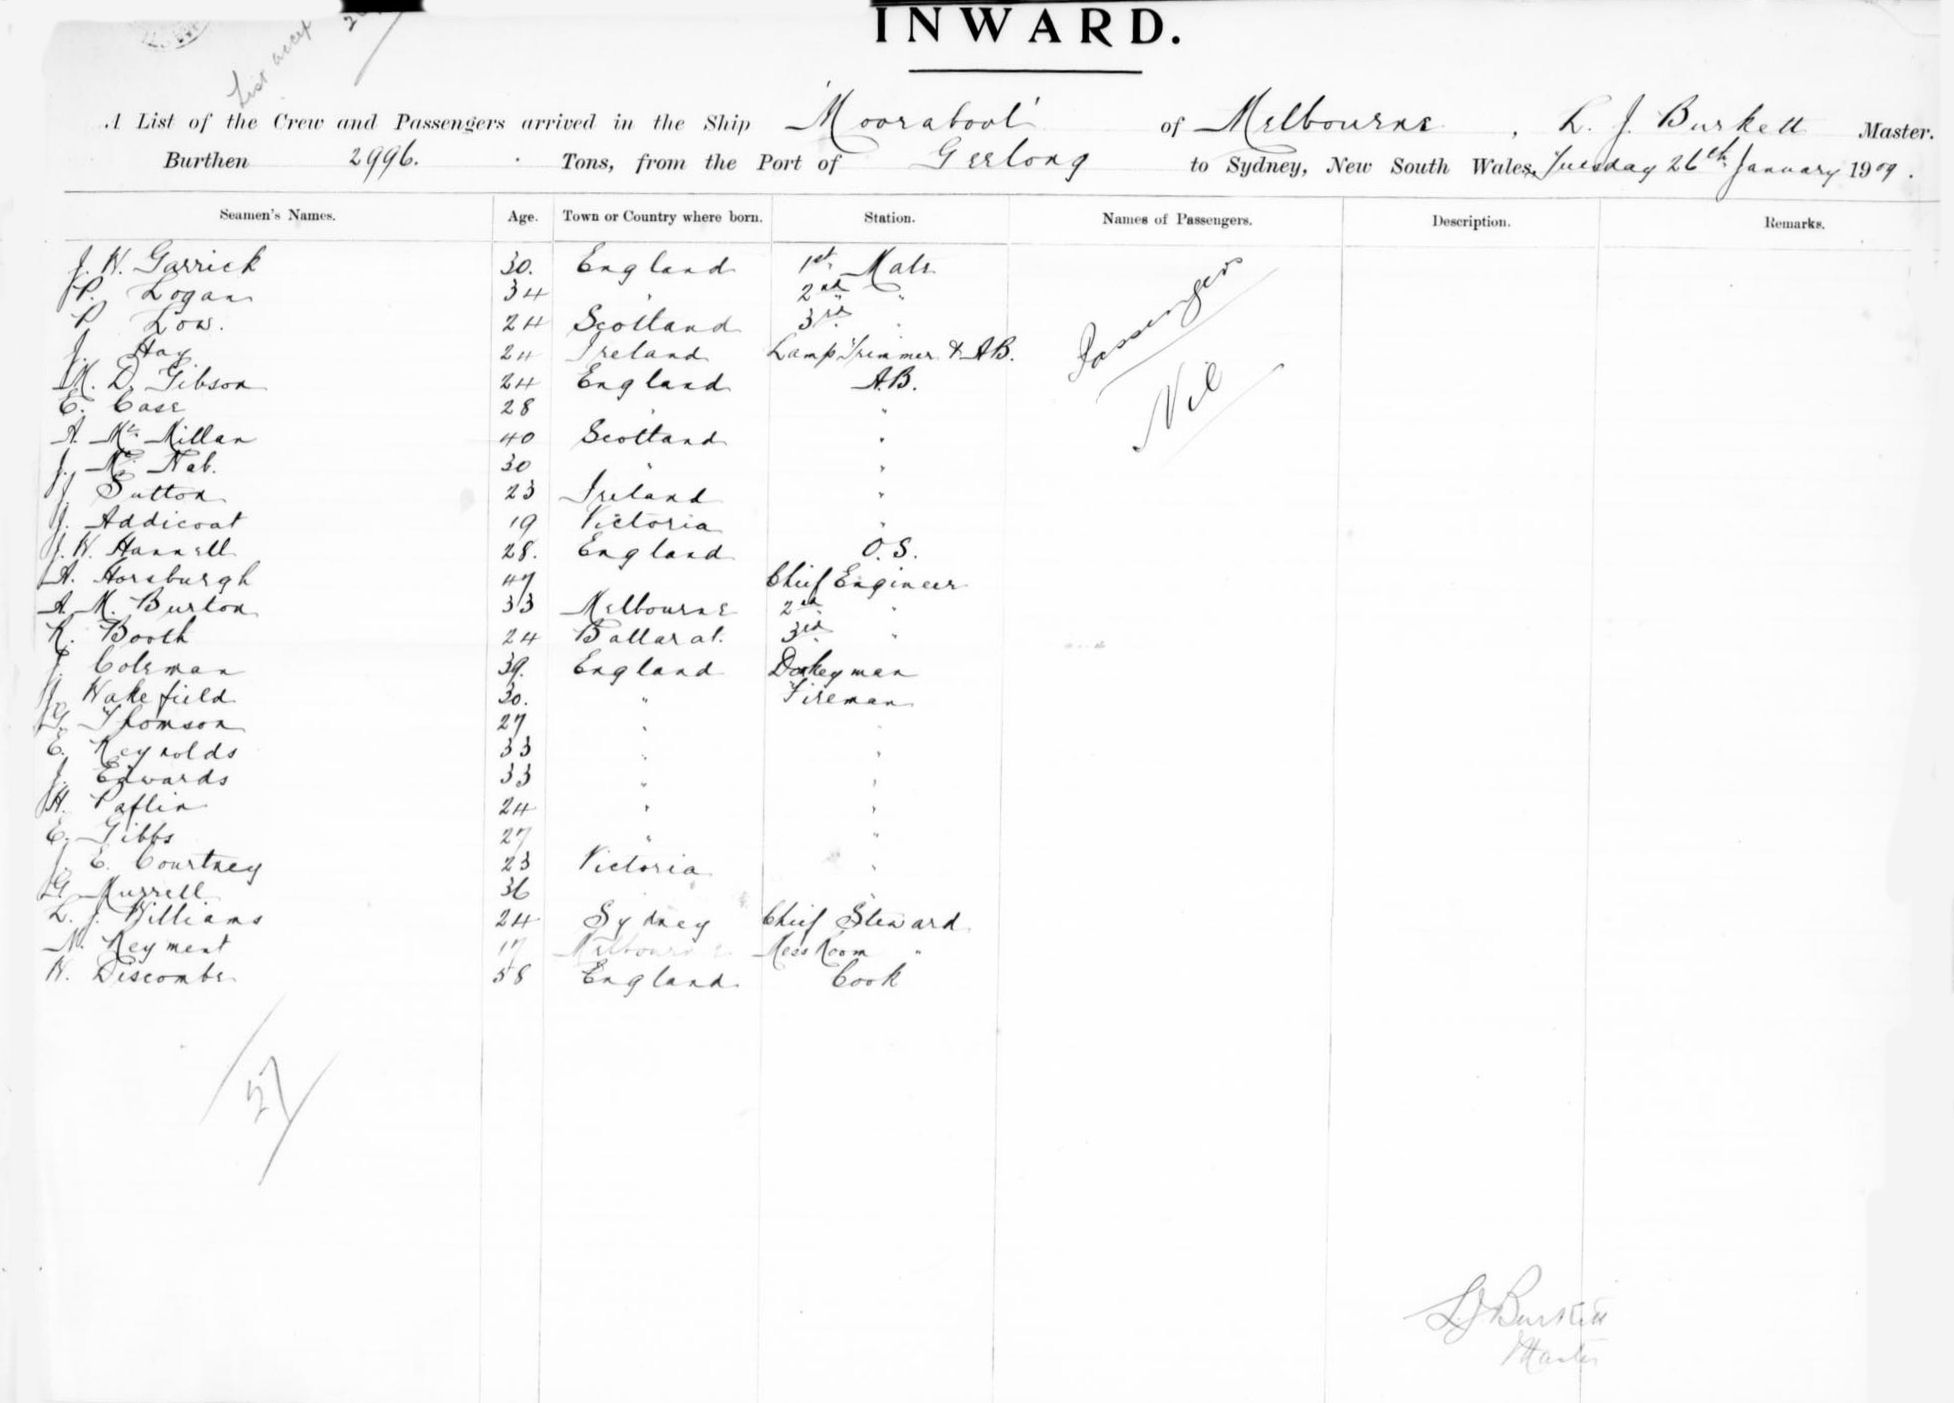 INWARD.
List accep
A List of the Crew and Passengers arrived in the Ship 'Moorabool' of Melbourne, L. J. Burkett Master.
Burthen 2996. Tons, from the Port of Geelong to Sydney, New South Wales, Tuesday 26th January 1909.
Seamen's Names. Age. Town or Country where born. Station. Names of Passengers. Description. Remarks.
J. W. Garrick 30. England 1st Mate
P. Logan 34 " 2nd "
P. Low. 24 Scotland 3rd "
J. Hay 24 Ireland Lamp Trimmer & AB.
M. D. Gibson 24 England A.B.
E. Case 28 " "
A. Mc Millan 40 Scotland "
J. Mc Nab. 30 " "
J. Sutton 23 Ireland "
J. Addicoat 19 Victoria "
J. W. Hannell 28. England O.S.
A. Horsburgh 47 Chief Engineer
A. M. Burton 33 Melbourne 2nd "
R. Booth 24 Ballarat. 3rd "
J. Coleman 39. England Donkeyman
J. Wakefield 30. " Fireman
G. Thomson 27 " "
E. Reynolds 33 " "
J. Edwards 33 " "
H. Paflin 24 " "
E. Gibbs 27 " "
J. E. Courtney 23 Victoria "
G. Murrell 36 " "
L. J. Williams 24 Sydney Chief Steward
N. Reyment 17 Melbourne Mess Room "
W. Discombe 58 England Cook
Passengers
Nil
27
L. J. Burkett
Master